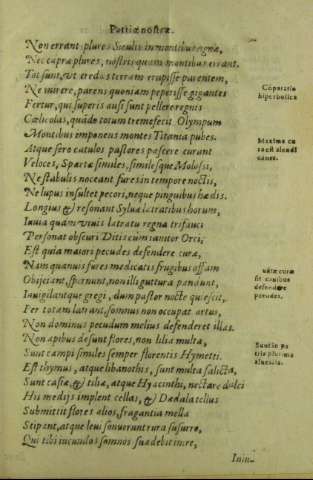 Patriæ nostræ.
Non errant plures Siculis in montibus agnæ,
Nec capræ plures, nostris quam montibus errant.
Tot sunt, vt credas terram erupisse parentem,
Ne
Fertur, qui superis ausi sunt pellere regnis
Cœlicolas, quãdo totum tremefecit Olympum
Montibus imponens montes Titania pubes.
Atque fero catulos pastores pascere curant
Veloces, Spartæ similes, similesque Molossis,
Ne stabulis noceant fures in tempore noctis,
Ne lupus insultet pecori, neque pinguibus hædis.
Longius & resonant Sylvæ latratibus horum,
Inuia quàm viuis latratu regna trifauci
Personat obscuri Ditis cum ianitor Orci,
Est quia maiori pecudes defendere curæ,
Nam quanuis fures medicatis frugibus offam
Obijciant, spernunt, non illi guttura pandunt,
Inuigilantque gregi, dum pastor nocte quiescit,
Per totam latrant, somnus non occupat artus,
Non dominus pecudum melius defenderet illas.
Non apibus desunt flores, non lilia multa,
Sunt campi similes semper florentis Hymeti.
Est thymus, atque libanothis, sunt multa salicta,
Sunt casiæ, & tiliæ, atque Hyacinthi, nectare dulci
His medijs implent cellas, & Dædala tellus
Submittit flores alios, fragantia mella
Stipant, atque leui sonuerunt rura susurro,
Qui tibi iucundos somnos suadebit inire,
Cõparatio
hiperbolica
Maxima cu
canes.
defendere
pecudes.
Sunt in pa
tria plurima
aluearia.